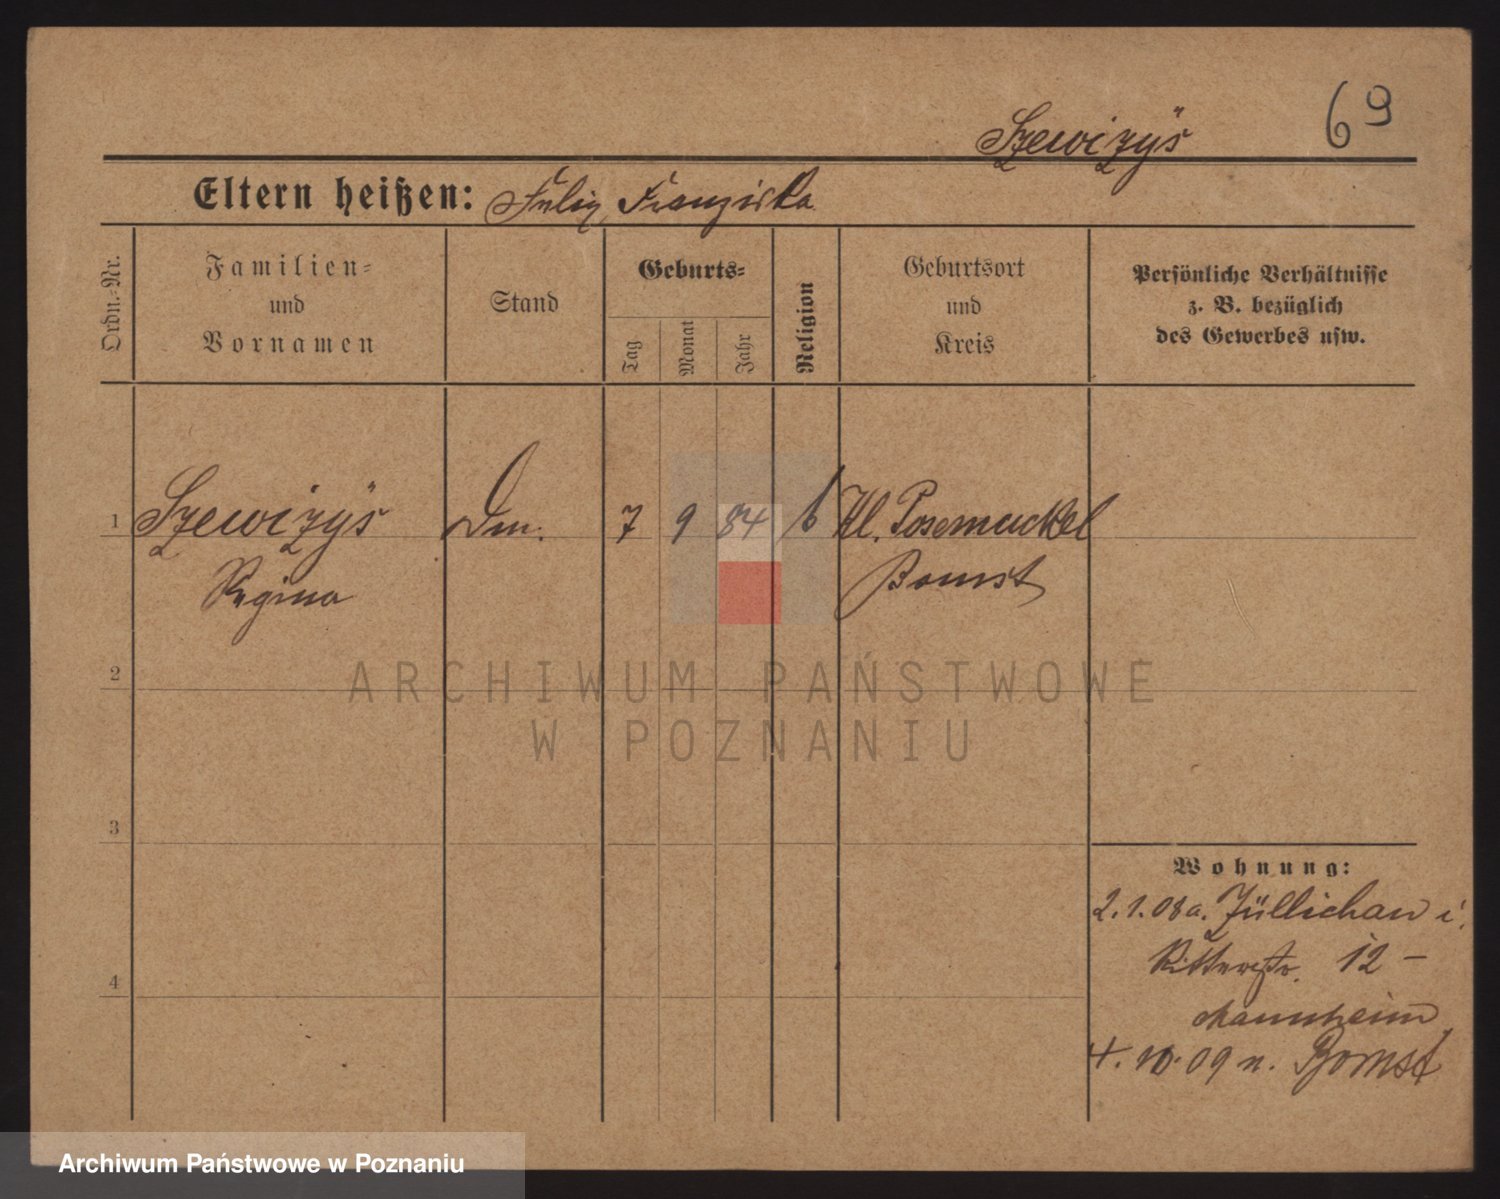 69
Szewizÿs
Eltern heißen: Felix, Franziska
Ordn.-Nr.
Familien-
und
Vornamen
Stand
Geburts-
Tag
Monat
Jahr
Religion
Geburtsort
und
Kreis
Persönliche Verhältnisse
z. B. bezüglich
des Gewerbes usw.
1 Szewizÿs 7 9 84 Kl. Posemuckel
Regina Bomst
2
3
4
Wohnung:
2.1.08 a. Züllichau i.
Ritterstr. 12 –
Mannheim
4.10.09 n. Bomst
ARCHIWUM PAŃSTWOWE
W POZNANIU
Archiwum Państwowe w Poznaniu